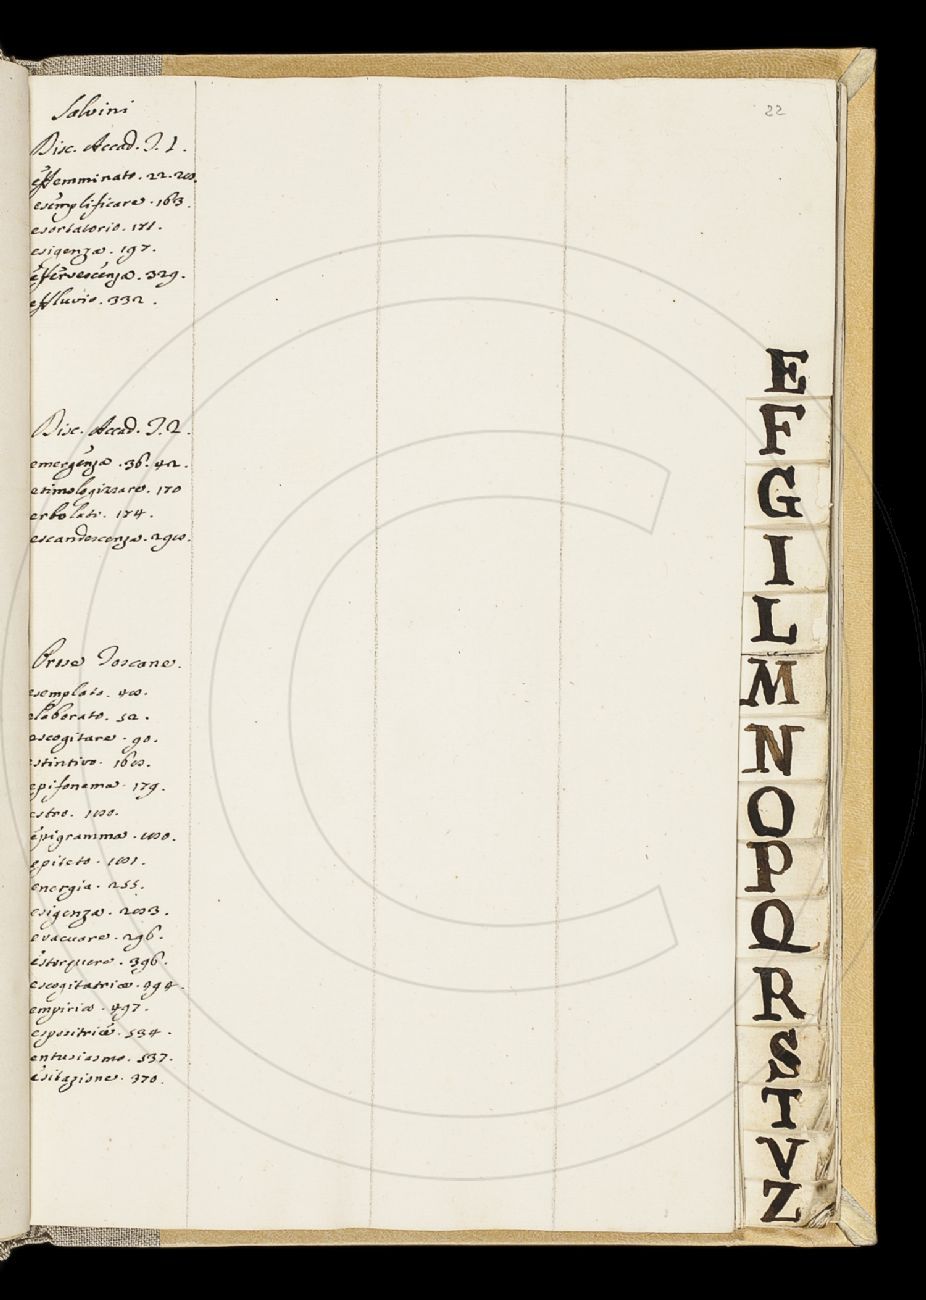 22
Salvini
Disc. Accad. T. 1.
effemminato. 22. 280.
esemplificare. 163.
esortatorio. 171.
esigenza. 197.
effervescenza. 329.
effluvio. 332.
Disc. Accad. T. 2.
emergenza. 36. 42.
etimologizzare. 170
erbolato. 174.
escandescenza. 298.
Prose Toscane.
esemplato. 48.
elaborato. 52.
escogitare. 90.
estintivo. 168.
epifonema. 179.
estro. 180.
epigramma. 180.
epiteto. 181.
energia. 255.
esigenza. 283.
evacuare. 296.
estorquere. 396.
escogitatrice. 494.
empirica. 497.
espositrice. 534.
entusiasmo. 537.
esitazione. 370.
E
F
G
I
L
M
N
O
P
Q
R
S
T
V
Z